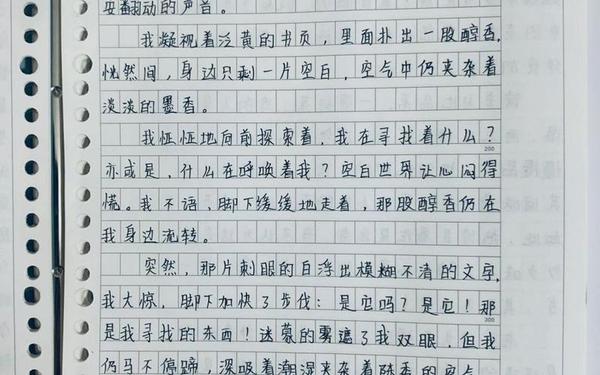 妥翻动的声音。
我凝视着泛黄的书页,里面扑出一股醇香,
恍然间,身边只剩一片空白,空气中仍夹杂着
淡淡的墨香。
我怔怔地向前探索着,我在寻找着什么?
200
亦或是,什么在呼唤着我?空白世界让心闷得
慌。我不语,脚下缓缓地走着,那股醇香仍在
我身边流转。
突然,那片刺眼的白浮出模糊不清的文字,
我大惊,脚下加快了步伐:是它吗?是它!那
300
是我寻找的东西!迷蒙的雾遮了我双眼,但我
仍马不停蹄,深吸着潮湿夹杂着陈香的空气